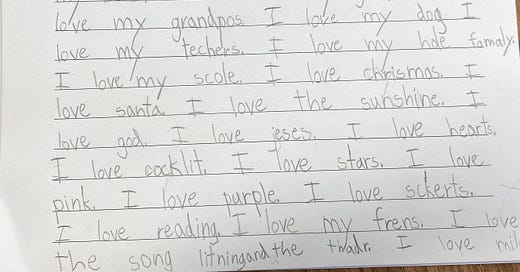 love my grandpos. I love my dog I
love my techers. I love my hole famaly.
I love my scole. I love chrismas. I
love santa. I love the sunshine. I
love god. I love jeses. I love hearts.
I love cocklit. I love stars. I love
pink. I love purple. I love sckerts.
I love reading. I love my frens. I love
the song litningandthe thadr. I love mil